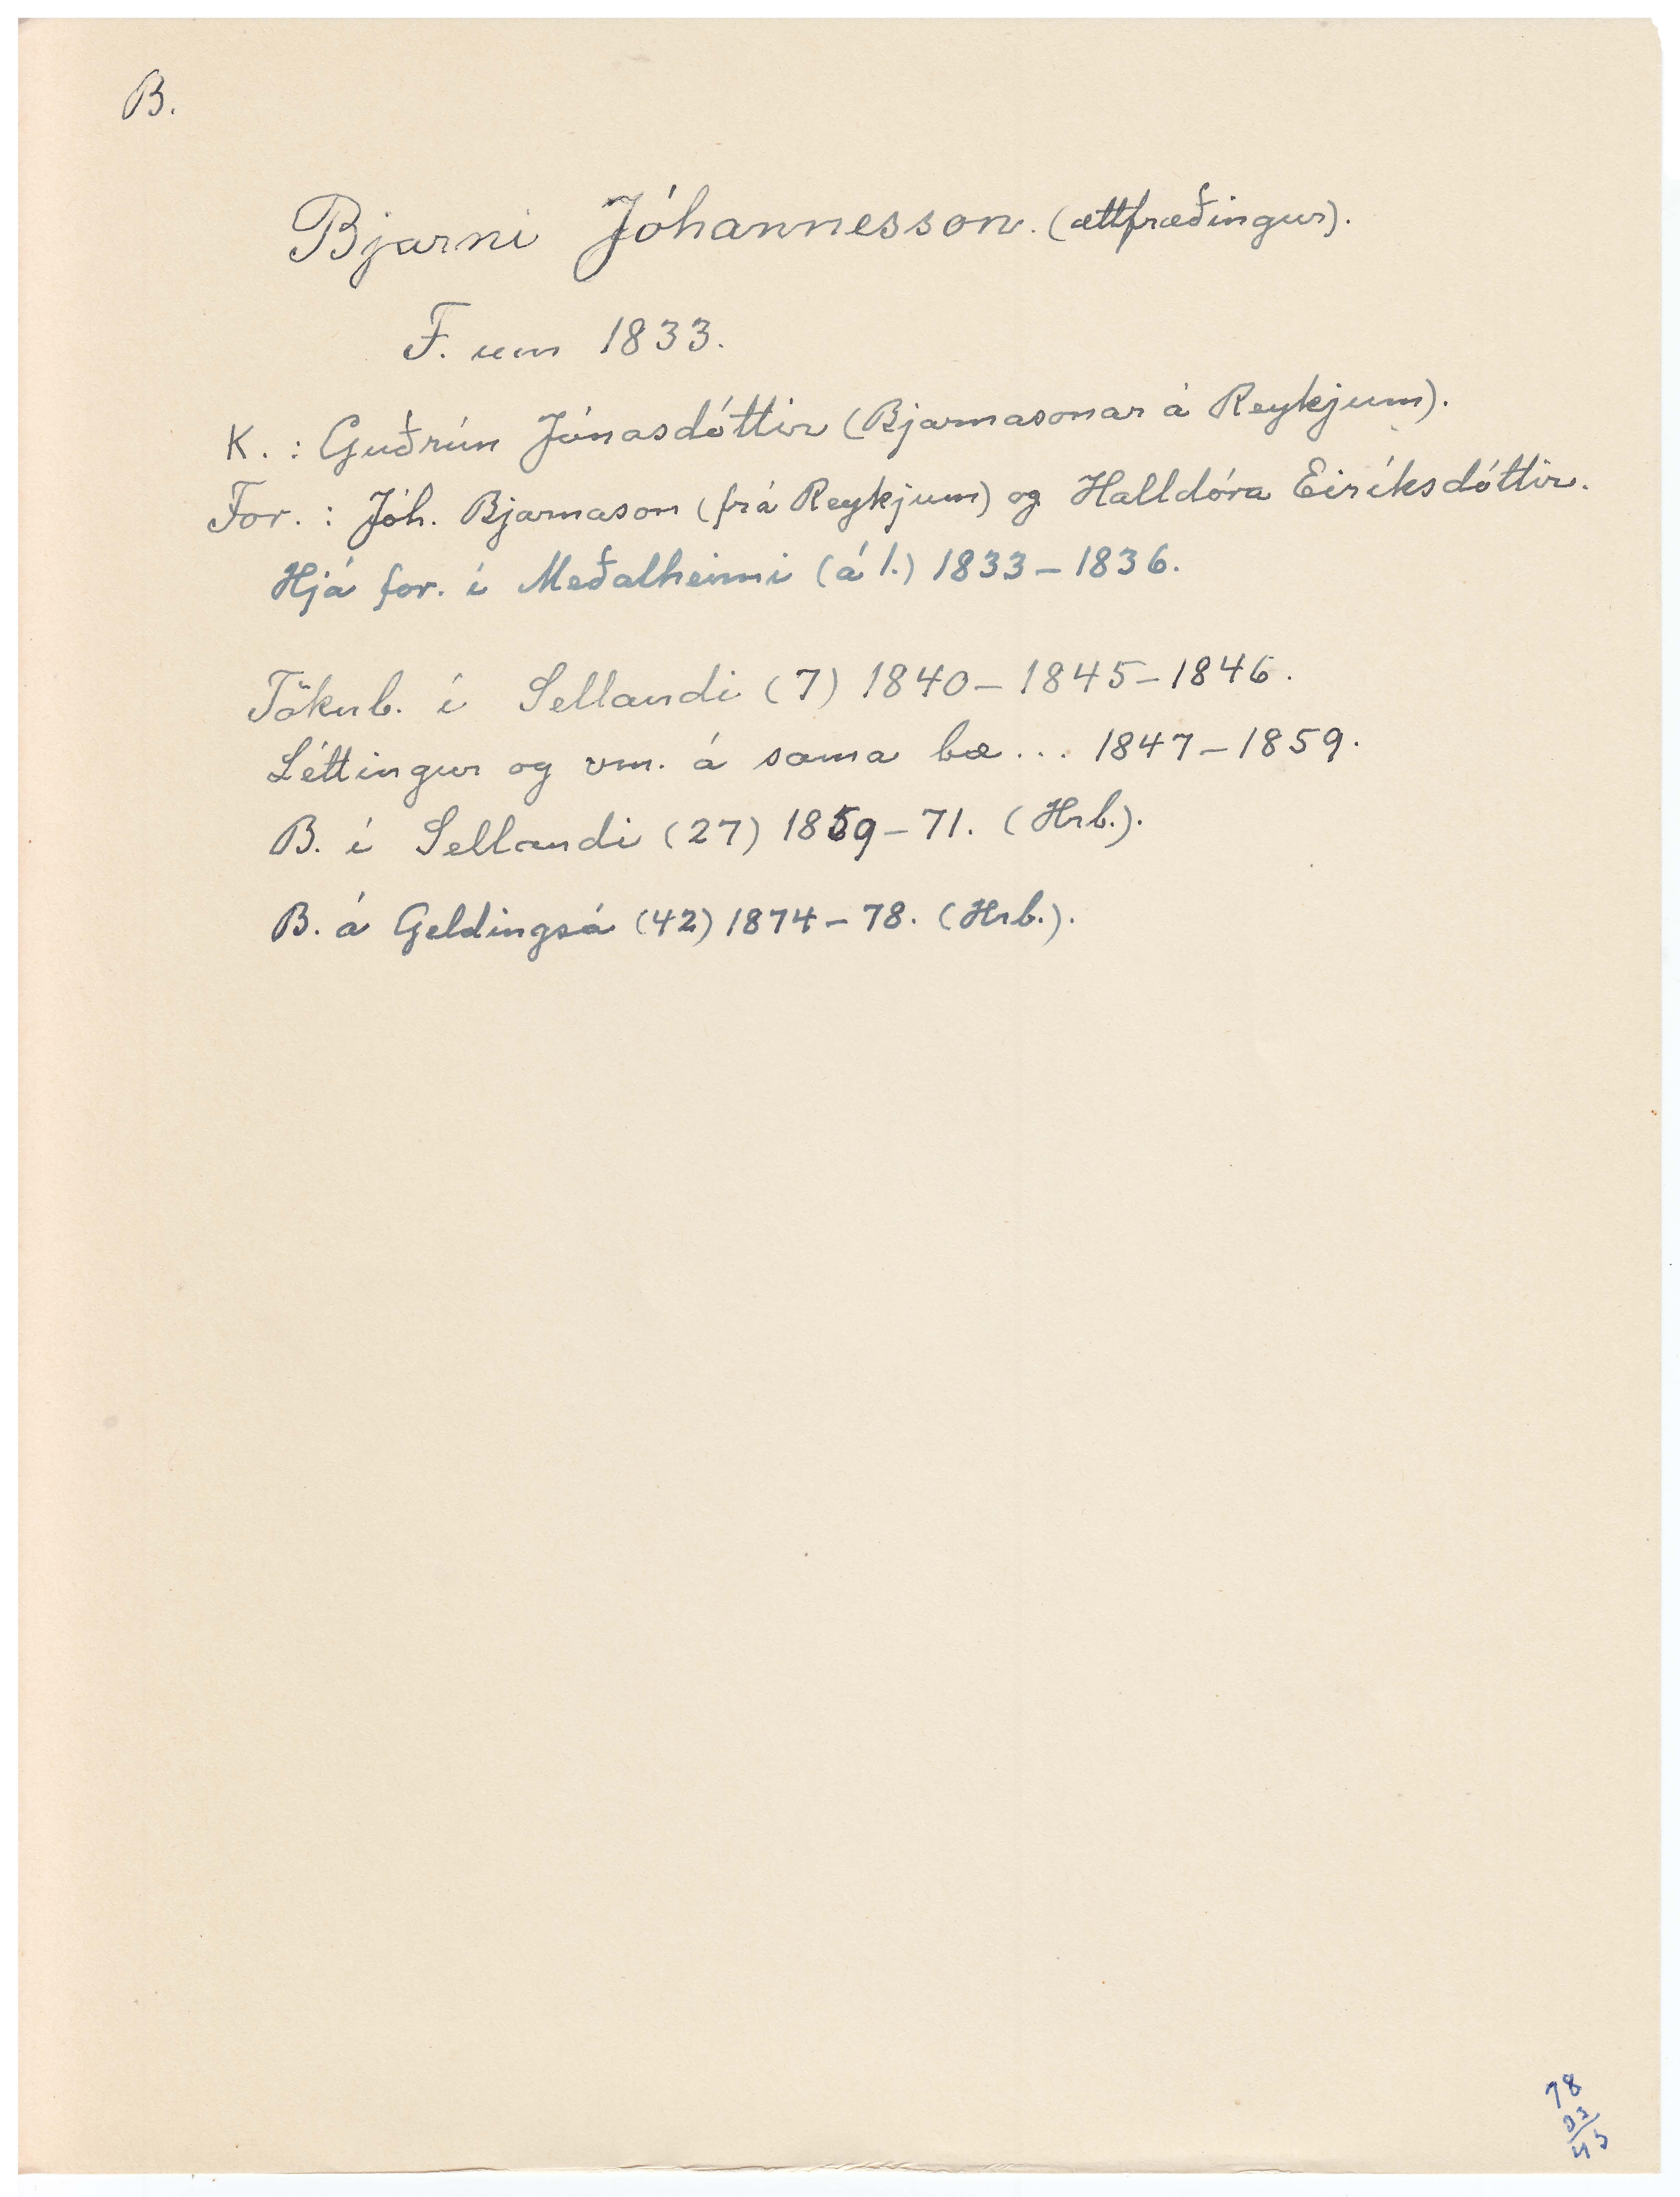 B.
Bjarni Jóhannesson. (ættfræðingur).
F. um 1833.
K. : Guðrún Jónasdóttir (Bjarnasonar á Reykjum).
For. : Jóh. Bjarnason (frá Reykjum) og Halldóra Eiríksdóttir.
Hjá for. í Meðalheimi (á 1.) 1833 – 1836.
Tökub. í Sellandi (7) 1840 – 1845 – 1846.
Léttingur og vm. á sama bæ ... 1847 – 1859.
B. í Sellandi (27) 1859 – 71. (Hrb.).
B. á Geldingsá (42) 1874 – 78. (Hrb.).
78
33
45